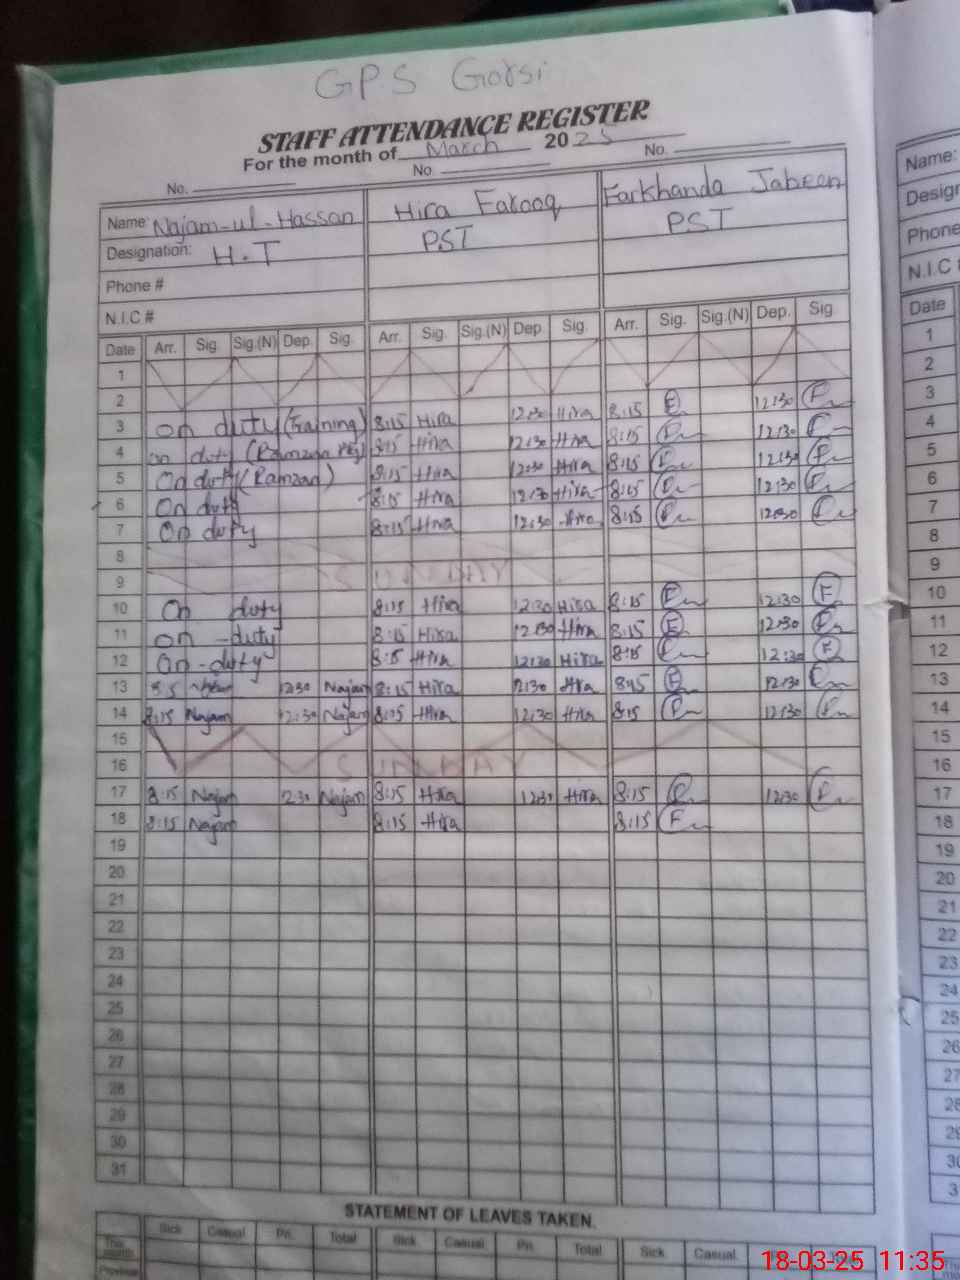 GPS Gorsi
STAFF ATTENDANCE REGISTER
For the month of March 2025
No. No. No.
Name: Najam-ul-Hassan Hira Farooq Farkhanda Jabeen
Designation: H.T PST PST
Phone #
N.I.C #
Date Arr. Sig. Sig.(N) Dep. Sig. Arr. Sig. Sig.(N) Dep. Sig. Arr. Sig. Sig.(N) Dep. Sig.
1
2
3 on duty (Training) 8:15 Hira 12:30 Hira 8:15 F 12:30 F
4 on duty (Ramzan 8:15 Hira 12:30 Hira 8:15 12:30
5 On duty (Ramzan) 8:15 Hira 12:30 Hira 8:15 12:30
6 On duty 8:15 Hira 12:30 Hira 8:15 12:30
7 On duty 8:15 Hira 12:30 Hira 8:15 12:30
8
9 SUNDAY
10 On duty 8:15 Hira 12:30 Hira 8:15 12:30 F
11 on -duty 8:15 Hira 12:30 Hira 8:15 F 12:30
12 On-duty 8:15 Hira 12:30 Hira 8:15 12:30 F
13 Najam 1230 Najam 8:15 Hira 1230 Hira 8:15 F 12:30
14 8:15 Najam 12:30 Najam 8:15 Hira 12:30 Hira 8:15 12:30
15
16 SUNDAY
17 8:15 Najam 1230 Najam 8:15 Hira 12:30 Hira 8:15 12:30
18 8:15 Najam 8:15 Hira 8:15 F
19
20
21
22
23
24
25
26
27
28
29
30
31
STATEMENT OF LEAVES TAKEN.
Sick Casual Pri. Total Sick Casual. Pri. Total Sick Casual.
This month
Previous
Name:
Design
Phone
N.I.C #
Date
1
2
3
4
5
6
7
8
9
10
11
12
13
14
15
16
17
18
19
20
21
22
23
24
25
26
27
28
29
30
3
18-03-25 11:35